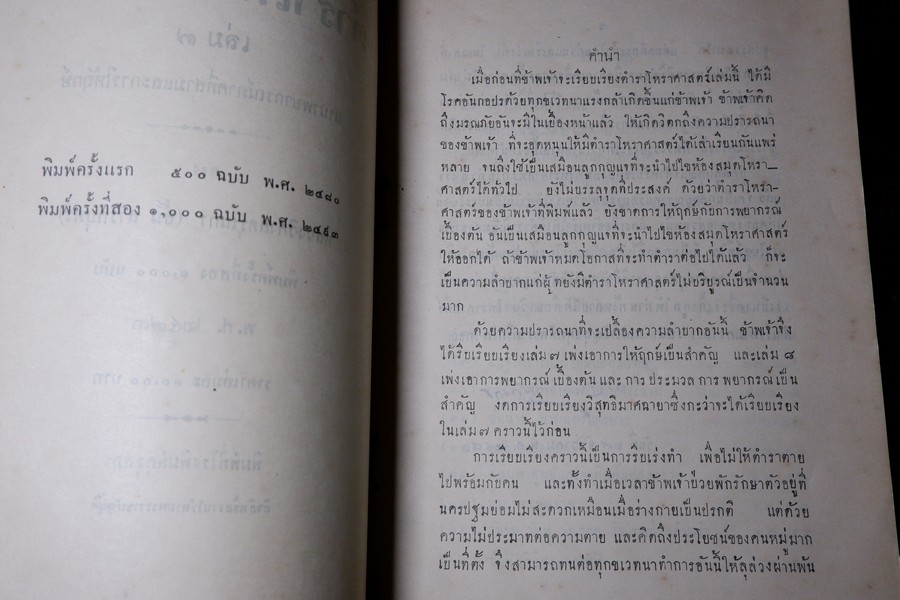 เล่ม ๗
พิมพ์ครั้งแรก ๕๐๐ ฉบับ พ.ศ. ๒๔๘๐
พิมพ์ครั้งที่สอง ๑,๐๐๐ ฉบับ พ.ศ. ๒๔๙๓
คำนำ
เมื่อก่อนที่ข้าพเจ้าจะเรียบเรียงตำราโหราศาสตร์เล่มนี้ ได้มี
โรคอันกอปรด้วยทุกขเวทนาแรงกล้าเกิดขึ้นแก่ข้าพเจ้า ข้าพเจ้าคิด
ถึงมรณภัยอันจะมีในเบื้องหน้าแล้ว ให้เกิดวิตกถึงความปรารถนา
ของข้าพเจ้า ที่จะอุดหนุนให้มีตำราโหราศาสตร์ได้เล่าเรียนกันแพร่
หลาย จนถึงใช้เป็นเสมือนลูกกุญแจที่จะนำไปไขห้องสมุดโหรา–
ศาสตร์ได้ทั่วไป ยังไม่บรรลุจุดที่ประสงค์ ด้วยว่าตำราโหรา–
ศาสตร์ของข้าพเจ้าที่พิมพ์แล้ว ยังขาดการให้ฤกษ์กับการพยากรณ์
เบื้องต้น อันเป็นเสมือนลูกกุญแจที่จะนำไปไขห้องสมุดโหราศาสตร์
ให้ออกได้ ถ้าข้าพเจ้าหมดโอกาสที่จะทำตำราต่อไปได้แล้ว ก็จะ
เป็นความลำบากแก่ผู้ที่ยังมีตำราโหราศาสตร์ไม่บริบูรณ์เป็นจำนวน
มาก
ด้วยความปรารถนาที่จะเปลื้องความลำบากอันนี้ ข้าพเจ้าจึง
ได้รีบเรียบเรียงเล่ม ๗ เพ่งเอาการให้ฤกษ์เป็นสำคัญ และเล่ม ๘
เพ่งเอาการพยากรณ์เบื้องต้นและการประมวลการพยากรณ์เป็น
สำคัญ งดการเรียบเรียงวิสุทธิมาศฉายาซึ่งกะว่าจะได้เรียบเรียง
ในเล่ม ๗ คราวนี้ไว้ก่อน
การเรียบเรียงคราวนี้เป็นการรีบเร่งทำ เพื่อไม่ให้ตำราตาย
ไปพร้อมกับคน และทั้งทำเมื่อเวลาข้าพเจ้าป่วยพักรักษาตัวอยู่ที่
นครปฐมย่อมไม่สะดวกเหมือนเมื่อร่างกายเป็นปรกติ แต่ด้วย
ความไม่ประมาทต่อความตาย และคิดถึงประโยชน์ของคนหมู่มาก
เป็นที่ตั้ง จึงสามารถทนต่อทุกขเวทนาทำการอันนี้ให้ลุล่วงผ่านพ้น